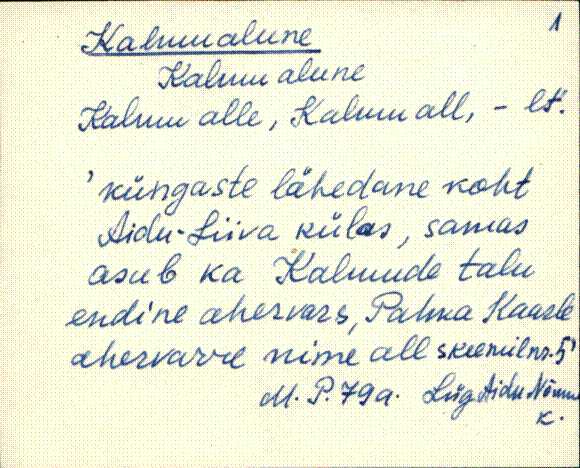 1
Kalmualune
Kalmu alune
Kalmu alle, Kalmu all, - lt.
'küngaste lähedane koht
Aidu-Liiva külas, samas
asub ka Kalmude talu
endine ahervars, Palma Kaarle
ahervarre nime all skeemil nr. 5'
M. P. 79a. Lüg Aidu Nõmme
k.